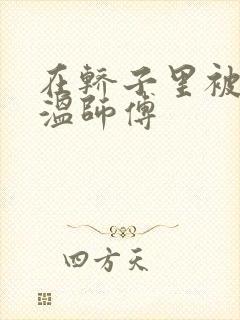 在轿子里被
温师傅
四方天